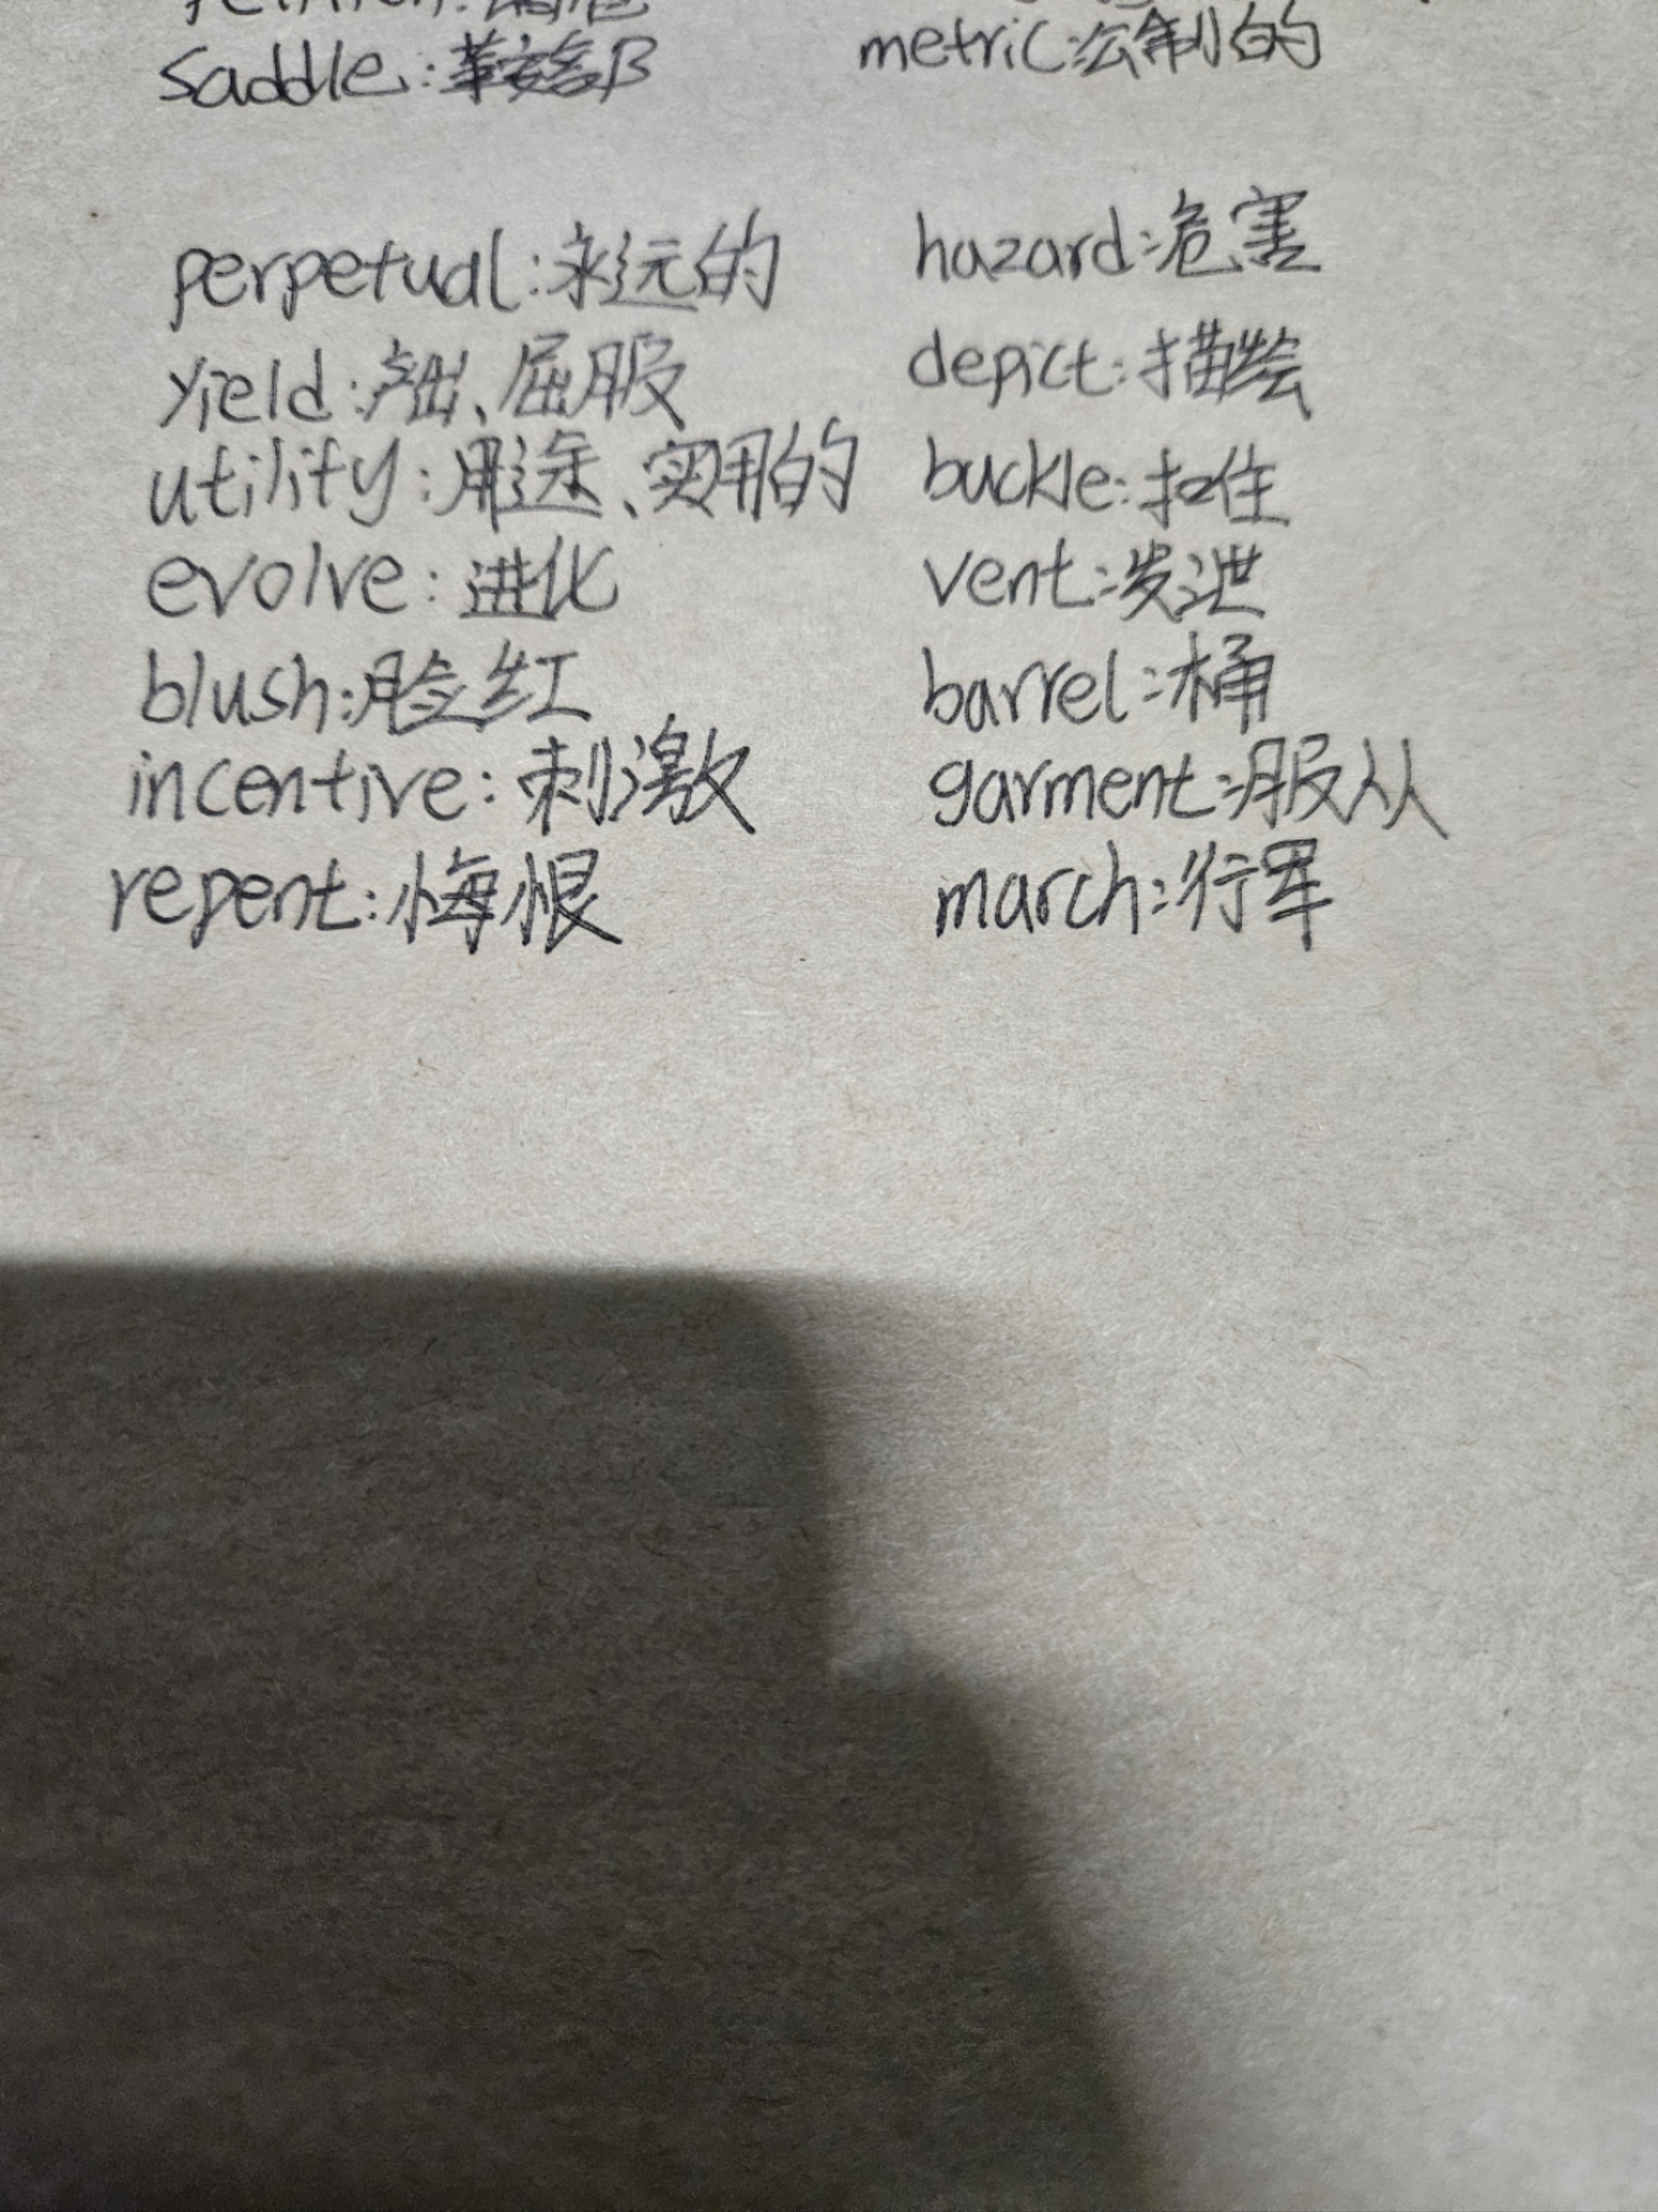 saddle:
metric:公制的
perpetual:永远的
hazard:危害
yield:产出、屈服
depict:描绘
utility:用途、实用的
buckle:扣住
evolve:进化
vent:发泄
blush:脸红
barrel:桶
incentive:刺激
garment:服从
repent:悔恨
march:行军